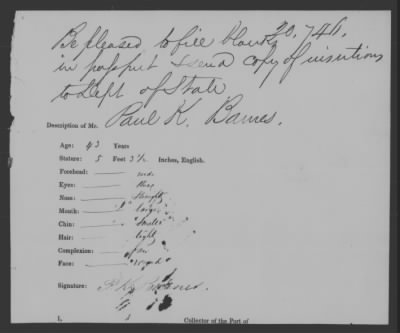 20,746.
Be pleased to fill blanks
in passport & send copy of insertions
to Dept of State
Description of Mr. Paul K. Barnes.
Age: 43 Years
Stature: 5 Feet 3½ Inches, English.
Forehead: med.
Eyes:
Nose: straight
Mouth: large
Chin: small
Hair: light
Complexion: fair
Face: round
Signature: P. K. Barnes.
I, Collector of the Port of